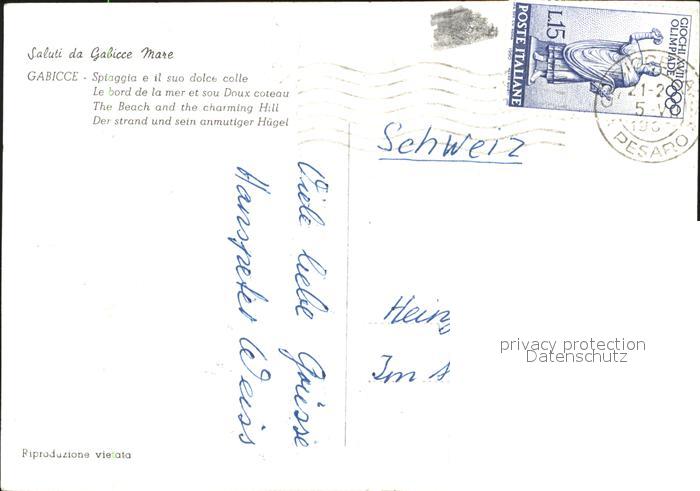 Saluti da Gabicce Mare
GABICCE - Spiaggia e il suo dolce colle
Le bord de la mer et sou Doux coteau
The Beach and the charming Hill
Der strand und sein anmutiger Hügel
POSTE ITALIANE
L.15
GIOCHI XVII
OLIMPIADE
21-2
5-V
196
PESARO
Schweiz
Viele liebe Grüsse
Hanspeter Weiss
Hein
Im
privacy protection
Datenschutz
Riproduzione vietata